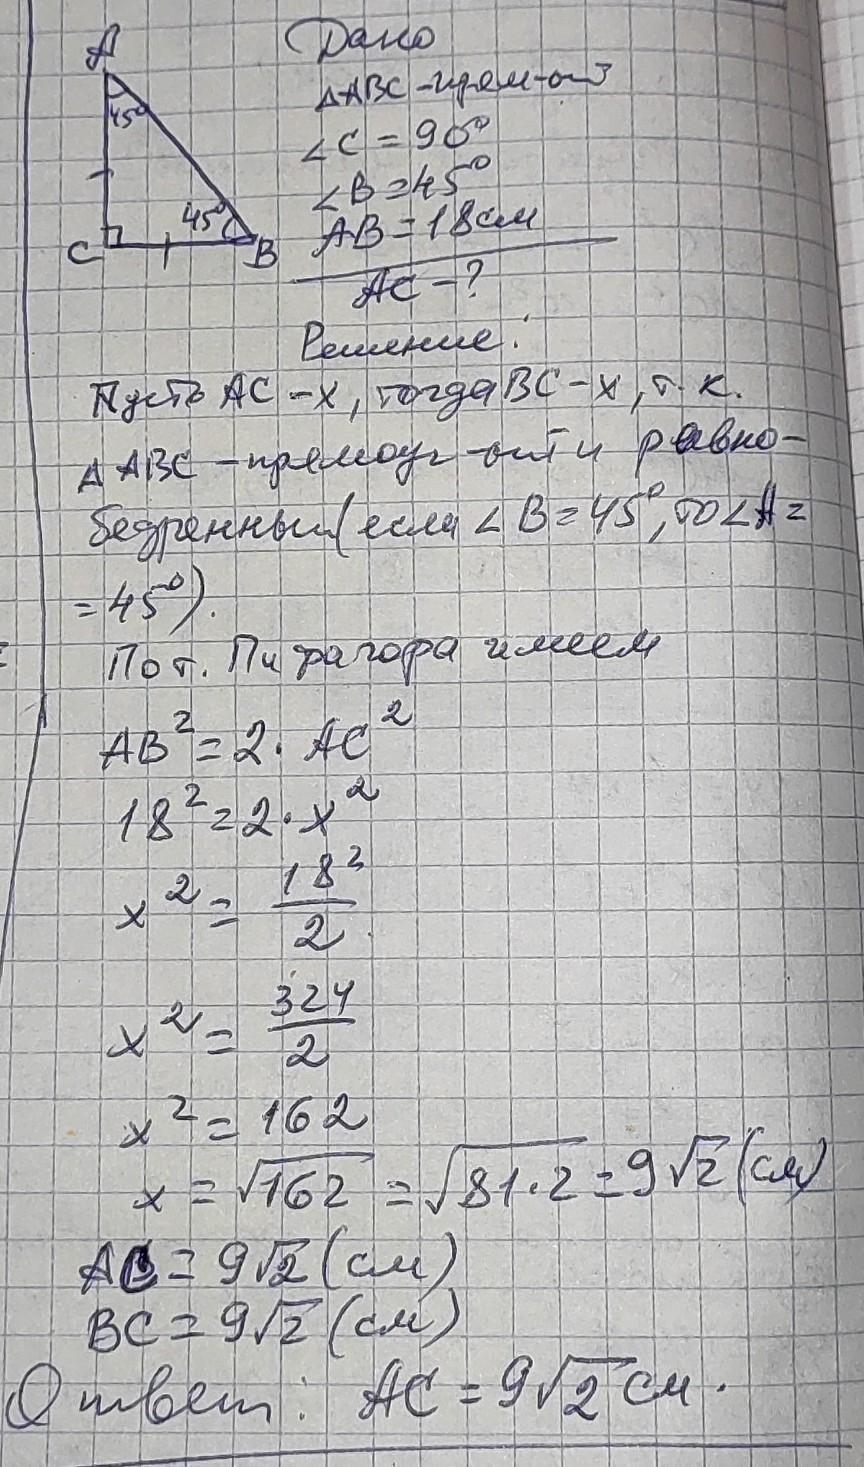 A
45°
45°
C
B
Дано
△ABC-прям-от
∠C = 90°
∠B = 45°
AB = 18см
AC - ?
Решение:
Пусть AC - x, тогда BC - x, т. к.
△ ABC - прямоуг-ый и равно-
бедренный (если ∠B = 45°, то ∠A =
= 45°).
По т. Пифагора имеем
AB² = 2 · AC²
18² = 2 · x²
x² = 18²/2
x² = 324/2
x² = 162
x = √162 = √81·2 = 9√2 (см)
AC = 9√2 (см)
BC = 9√2 (см)
Ответ: AC = 9√2 см.